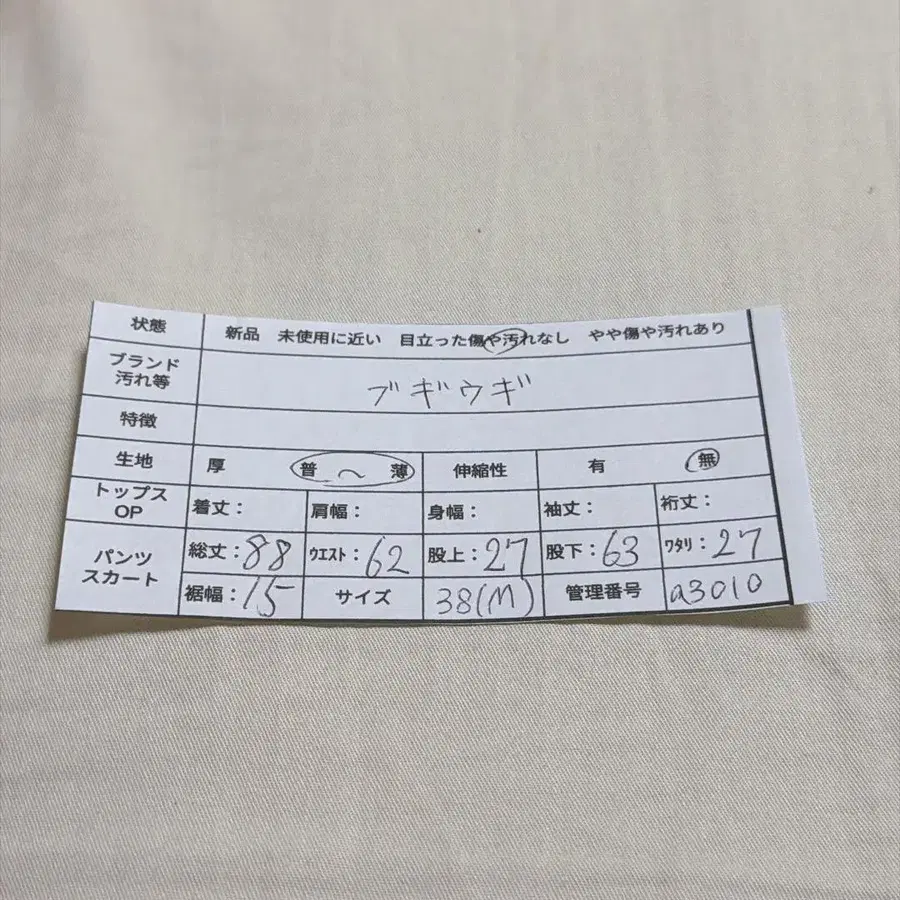 状態 新品 未使用に近い 目立った傷や汚れなし やや傷や汚れあり
ブランド
汚れ等 ブギウギ
特徴
生地 厚 普 〜 薄 伸縮性 有 無
トップス
OP 着丈: 肩幅: 身幅: 袖丈: 裄丈:
パンツ
スカート 総丈:88 ウエスト:62 股上:27 股下:63 ワタリ:27
裾幅:15 サイズ 38(M) 管理番号 a3010